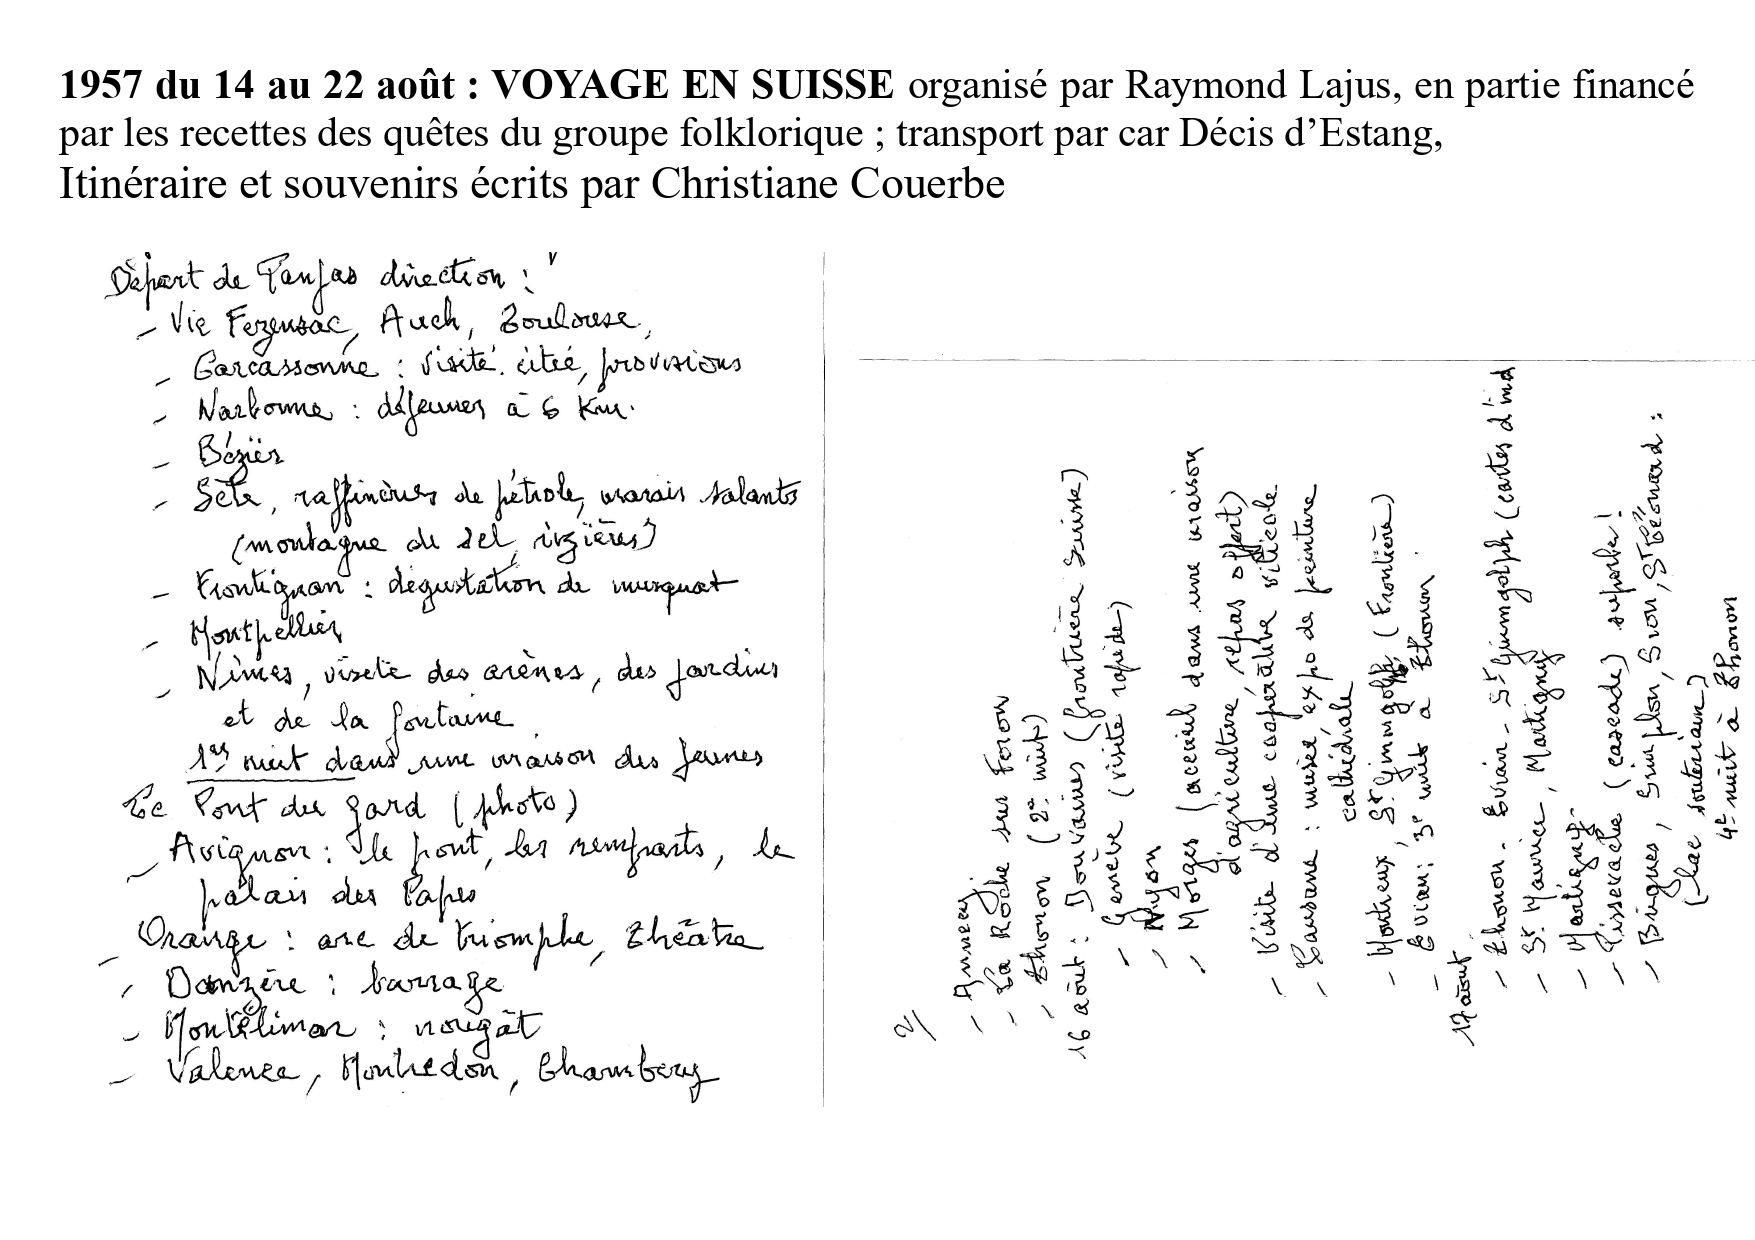 1957 du 14 au 22 août : VOYAGE EN SUISSE organisé par Raymond Lajus, en partie financé
par les recettes des quêtes du groupe folklorique ; transport par car Décis d’Estang,
Itinéraire et souvenirs écrits par Christiane Couerbe
Départ de Panjas direction :
- Vic Fezensac, Auch, Toulouse,
- Carcassonne : visite cité, provisions
- Narbonne : déjeuner à 6 Km.
- Béziers
- Sète, raffineries de pétrole, marais salants
(montagne de sel, rizières)
- Frontignan : dégustation de musquat
- Montpellier
- Nîmes, visite des arènes, des jardins
et de la fontaine
1ère nuit dans une maison des jeunes
Le Pont du gard (photo)
- Avignon : le pont, les remparts, le
palais des Papes
- Orange : arc de triomphe, théâtre
- Donzère : barrage
- Montélimar : nougât
- Valence, Chambéry
2/
- Annecy
- La Roche sur Foron
- Thonon (2e nuit)
16 août : Douvaines (frontière suisse)
- Genève (visite rapide)
- Nyon
- Morges (accueil dans une maison
d'agriculture, repas offert)
- Visite d'une coopérative viticole
- Lausanne : musée expo de peinture
cathédrale
- Montreux, St Gimgolph (Frontière)
- Evian : 3e nuit à Thonon.
17 août
- Thonon. Evian. St Guimgolph (cartes d'ind
- St Maurice, Martigny
- Martigny
- Pissevache (cascade) superbe !
- Brigues, Simplon, Sion, St Léonard :
(lac souterain)
4e nuit à Thonon